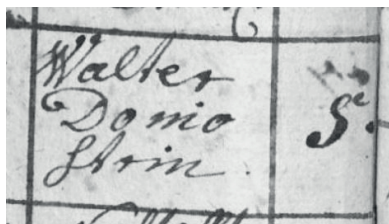 Walter
Donio
Strin
S.